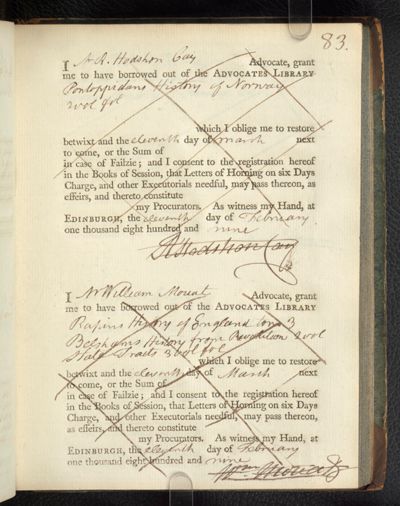 83.
I A R. Hodshon Cay Advocate, grant
me to have borrowed out of the ADVOCATES LIBRARY
Pontoppidans History of Norway
2 vol
which I oblige me to restore
betwixt and the eleventh day of March next
to come, or the Sum of
in case of Failzie; and I consent to the registration hereof
in the Books of Session, that Letters of Horning on six Days
Charge, and other Executorials needful, may pass thereon, as
effeirs, and thereto constitute
my Procurators. As witness my Hand, at
EDINBURGH, the eleventh day of February
one thousand eight hundred and nine
R Hodshon Cay
I Mr William Mouat Advocate, grant
me to have borrowed out of the ADVOCATES LIBRARY
Rapins History of England 3
Belshams History from Revolution 2 vol
State Tracts 3 vol
which I oblige me to restore
betwixt and the eleventh day of March next
to come, or the Sum of
in case of Failzie; and I consent to the registration hereof
in the Books of Session, that Letters of Horning on six Days
Charge, and other Executorials needful, may pass thereon,
as effeirs, and thereto constitute
my Procurators. As witness my Hand, at
EDINBURGH, the eleventh day of February
one thousand eight hundred and nine
Wm Mouat